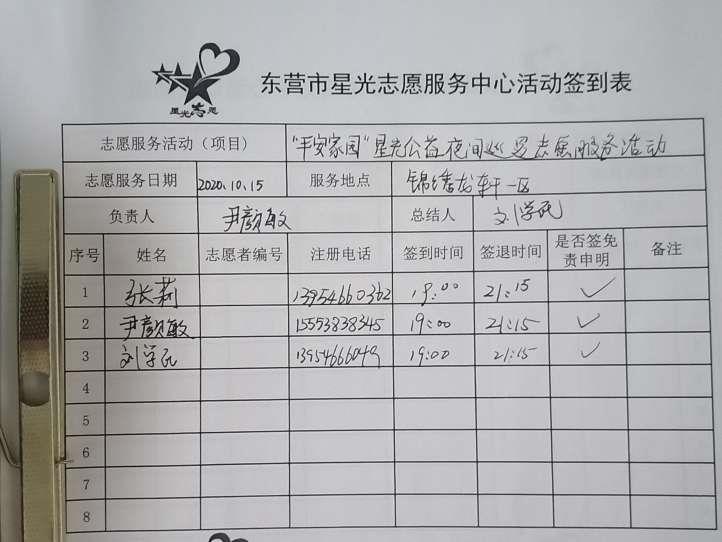 星光志愿
东营市星光志愿服务中心活动签到表
志愿服务活动（项目） "平安家园"星光公益夜间巡逻志愿服务活动
志愿服务日期 2020.10.15 服务地点 锦绣龙轩一区
负责人 尹颜敏 总结人 刘学民
序号 姓名 志愿者编号 注册电话 签到时间 签退时间 是否签免责申明 备注
1 张莉 13954660362 19:00 21:15 ✓
2 尹颜敏 15553838345 19:00 21:15 ✓
3 刘学民 1395466049 19:00 21:15 ✓
4
5
6
7
8